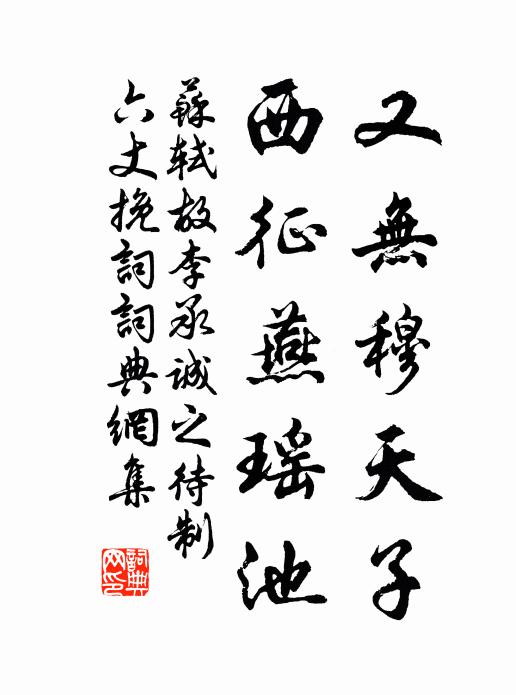 又無穆天子
西征燕瑶池
蘇軾故李承誠之待制
六丈挽詞詞典網集
詞典网印